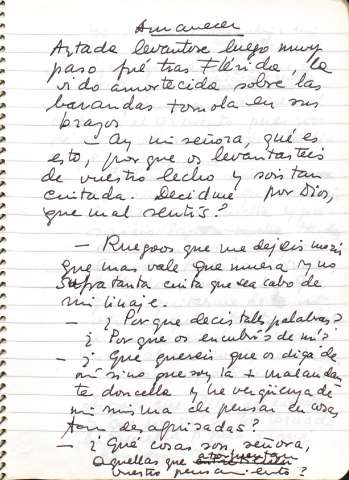 Amanecer
Artada levantose luego muy
paso fué tras Flérida, la
vido amortecida sobre las
barandas tomola en sus
brazos
— Ay mi señora, qué es
esto, porque os levantasteis
de vuestro lecho y sois tan
cuitada. Decidme por Dios,
que mal sentis?
— Ruegoos que me dejeis morir
que mas vale que muera y no
Sufra tanta cuita que sea cabo de
mi linaje.
— ¿Por que decis tales palabras?
¿Por que os encubris de mi?
— ¿Que quereis que os diga de
mi sino que soy la + malandan
te doncella y he vergüenza de
mi misma de pensar en cosas
tan desaguisadas?
— ¿Qué cosas son, señora,
aquellas que atormentan
vuestro pensamiento?